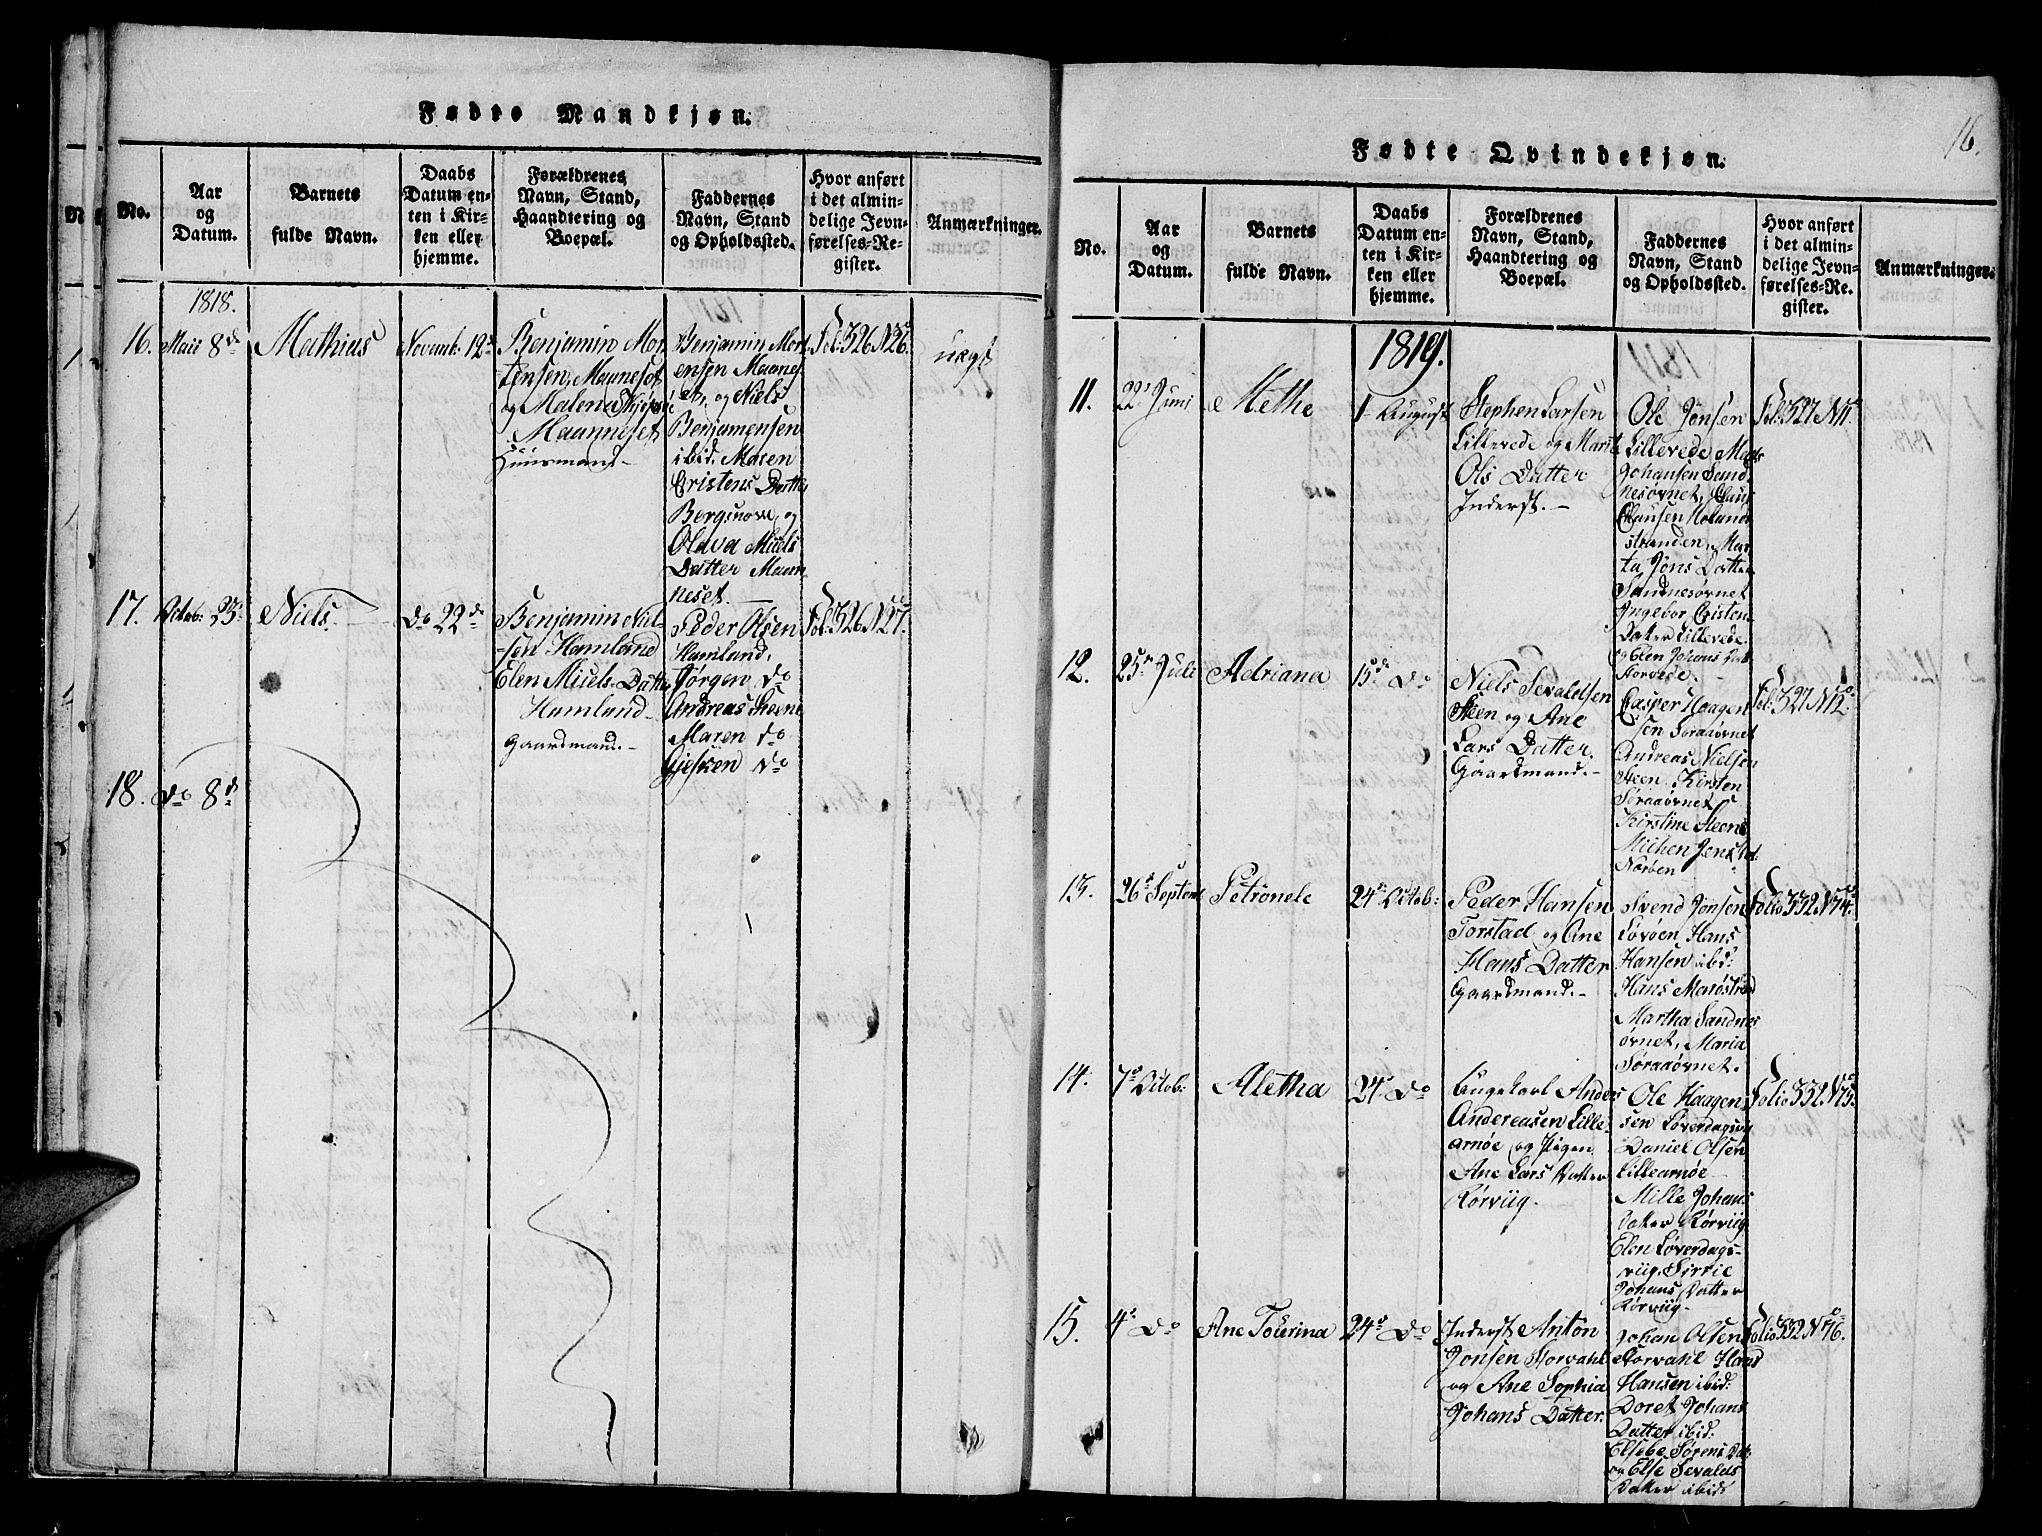 Fødte Mandkjøn.
No.
Aar
og
Datum.
Barnets
fulde Navn.
Daabs
Datum en-
ten i Kir-
ken eller
hjemme.
Forældrenes
Navn, Stand,
Haandtering og
Boepæl.
Faddernes
Navn, Stand
og Opholdssted.
Hvor anført
i det almin-
delige Jevn-
førelses-Re-
gister.
Anmærkninger.
1818.
16.
Maii 8de
Mathius
Novemb: 12te
Benjamin Mor
tensen, Maaneset
og Malena
Maanneset
Huusmand.
Benjamin Mort
ensen Maanes
et, og Niels
Benjamensen
ibid. Maren
Cristens Datter
Borgsnove, og
Olava Miels
Datter Maan
neset.
Fol: 326 No 26.
uægt
17.
Octob: 23
Niels.
do 22de
Benjamin Niel
sen Hamland
Elen Miels Datter
Hamland
Gaardmand.
Peder Olsen
Hamland,
Jørgen do
Andreas
Maren do
Gjesken do
Fol: 326 No 27.
18.
do 8de
Fødte Qvindekjøn.
16.
No.
Aar
og
Datum.
Barnets
fulde Navn.
Daabs
Datum en-
ten i Kir-
ken eller
hjemme.
Forældrenes
Navn, Stand,
Haandtering og
Boepæl.
Faddernes
Navn, Stand
og Opholdssted.
Hvor anført
i det almin-
delige Jevn-
førelses-Re-
gister.
Anmærkninger.
1819.
11.
22 Juni
Methe
1 August
Stephen Larsen
Lillevede og Marit
Ols Datter
Inderst.
Ole Jonsen
Lillevede Mads
Johansen Sand
nesøvnet, Claus
Clausen Holands
stranden, Mar
ta Jons Datter
Sandnesøvnet
Ingebor Cristens
Datter Lillevede
og Elen Johans Dat
Horvede.
Fol: 327 No 11.
12.
25 Juli
Adriana
15de do
Niels Sevaldsen
Steen og Ane
Lars Datter
Gaardmand.
Casper Haagen
sen Soraaøvnet
Andreas Nielsen
Steen, Kirsten
Søraaøvnet
Kirstine Steen
Michen Jens Dat:
Norøen
Fol: 327 No 12.
13.
26 Septemb
Petronele
24 Octob:
Peder Hansen
Torstad og Ane
Hans Datter
Gaardmand.
Svend Jonsen
Løvøen Hans
Hansen ibid:
Hans Marøstrand
Martha Sandnes
øvnet, Maria
Søraaøvnet.
Folio 332 No 74.
14.
7 Octob:
Aletha
24 do
Ungekarl Anders
Andreasen Lille-
arnøe og Pigen
Ane Lars Datter
Rørviig.
Ole Haagen
sen Løverdagsvig
Daniel Olsen
Lillearnøe
Mille Johans
Datter Rørviig
Elen Løverdags-
viig, Sirrie
Johans Datter
Rørviig.
Folio 332 No 75.
15.
4 do
Ane Tourina
24 do
Inderst Anton
Jonsen Storvahl
og Ane Sophia
Johans Datter.
Johan Olsen
Storvahl Hans
Hansen ibid:
Doret Johans
Datter ibid.
Elsebe Sørens Dat
og Else Sevalds
Datter ibid:
Folio 332 No 76.